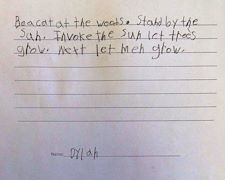 Beacat at the woods. Stand by the
Sun. Invoke the Sun let trees
grow. Next let meh grow.
Name: Dylan